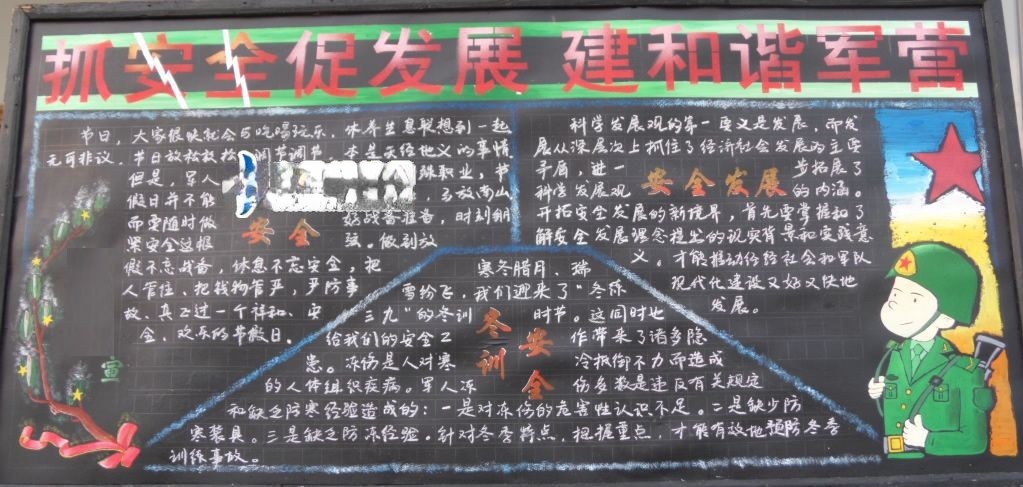 抓安全促发展 建和谐军营
节日，大家很快就会与吃喝玩乐、休养生息联想到一起
无可非议。节日放松放松调节调节，本是天经地义的事情
但是，军人
殊职业，节
假日并不能
马放南山
而要随时做
好战备准备，时刻绷
安全
紧安全这根
弦。做到放
假不忘战备，休息不忘安全，把
人管住、把钱物管严，严防事
故、真正过一个祥和、安
全、欢乐的节假日。
宣
科学发展观的第一要义是发展，而发
展从深层次上抓住了经济社会发展的主要
矛盾，进一
步拓展了
安全发展
科学发展观
的内涵。
开拓安全发展的新境界，首先要掌握和了
解安全发展理念提出的现实背景和实践意
义。才能推动经济社会和军队
现代化建设又好又快地
发展。
寒冬腊月、瑞
雪纷飞，我们迎来了“冬练
三九”的冬训
时节。这同时也
冬训安全
给我们的安全工
作带来了诸多隐
患。冻伤是人对寒
冷抵御不力而造成
的人体组织疾病。军人冻
伤多数是违反有关规定
和缺乏防寒经验造成的：一是对冻伤的危害性认识不足。二是缺少防
寒装具。三是缺乏防冻经验。针对冬季特点，把握重点，才能有效地预防冬季
训练事故。